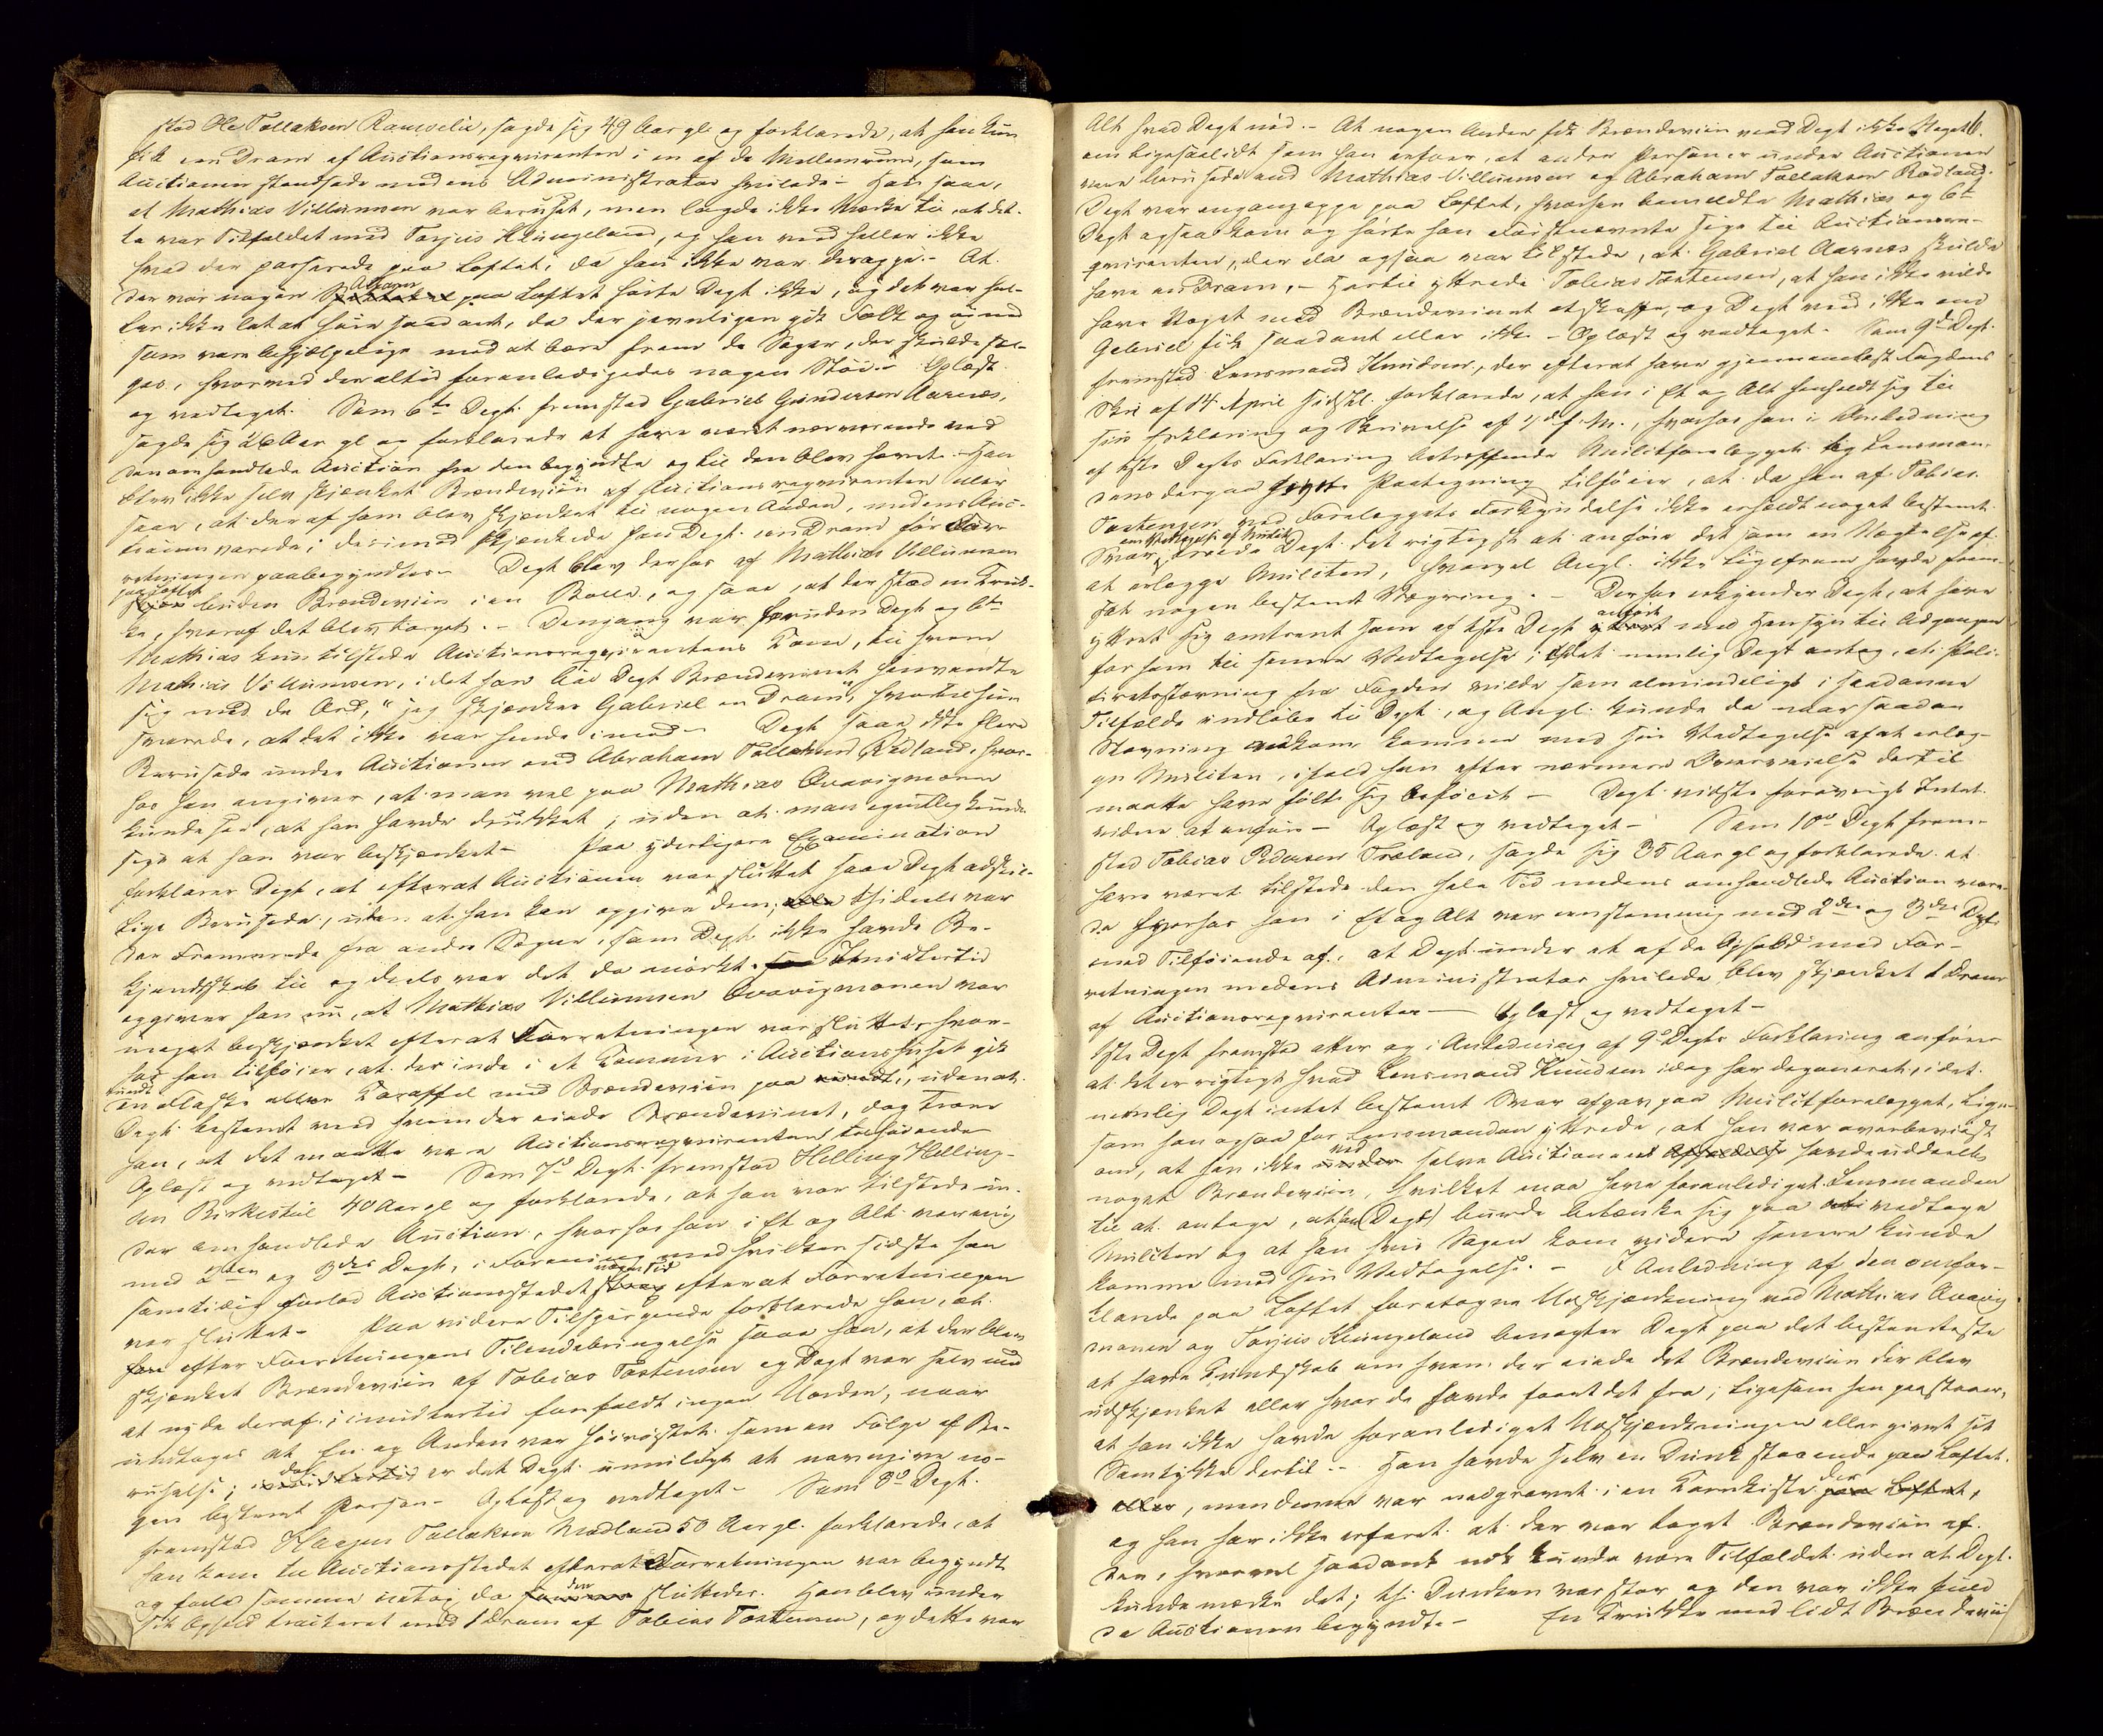 stod Ole Tollaksen Ramslie, sagde sig 49 Aar gl og forklarede, at han kun
fik een Dram af Auctionsreqvirenten i en af de Mellemrum, som
Auctionen standsede medens Administrator hvilede - Han saae,
at Mathias Villumsen var beruset, men lagde ikke Mærke til, at det-
te var Tilfældet med Torjus Klungeland, og han veed heller ikke
hvad der passerede paa Loftet, da han ikke var deroppe. - At
der var nogen Allarm paa Loftet hørte Dept ikke, og det var hel-
ler ikke let at høre saadant, da der jevnligen gik Folk op og ned
som vare behjælpelige med at bære frem de Sager, der skulde sæl-
ges, hvorved der altid foranledigedes nogen Støi. - Oplæst
og vedtaget. Som 6te Dept. fremstod Gabriel Gundersen Aarnes,
sagde sig 26 Aar gl og forklarede at have været nærværende ved
den omhandlede Auction fra den begyndte og til den blev hævet. - Han
blev ikke selv skjænket Brændeviin af Auctionsreqvirenten eller
saae, at der af ham blev skjænket til nogen Anden, medens Auc-
tionen varede; derimod skjænkede han Dept. een Dram før For-
retningen paabegyndtes - Dept blev derhos af Mathias Villumsen
paa Loftet buden Brændeviin i en Bolle, og saae, at der stod en Kruk-
ke, hvoraf det blev taget. - Dengang var foruden Dept og bte
Mathias kun tilstede Auctionsreqvirentens Kone, til hvem
Mathias Villumsen, i det han bød Dept Brændevinet henvendte
sig med de Ord, "jeg skjænker Gabriel en Dram", hvortil hun
svarede, at det ikke var hende imod - Dept saae ikke flere
Berusede under Auctionen end Abraham Tollaksen Rødland, hvor-
hos han angiver, at man vel paa Mathias Qvavigmonen
kunde see, at han havde drukket; uden at man egentlig kunde
sige at han var beskjænket - Paa yderligere Examination
forklarer Dept, at efterat Auctionen var sluttet saae Dept adskil-
lige Berusede, uden at han kan opgive dem; thi deels var
der Fremmede fra andre Sogne, som Dept ikke havde Be-
kjendtskab til og deels var det da mørkt. Imidlertid
opgiver han nu, at Mathias Villumsen Qvavigmonen var
meget beskjænket efterat Forretningen var sluttet, hvor-
hos han tilføier, at der inde i et Kammer i Auctionshuset gik
rundt en Flaske eller Karaffel med Brændeviin paa, uden at
Dept bestemt veed hvem der eiede Brændevinet, dog troer
han, at det maatte være Auctionsreqvirenten tilhørende
Oplæst og vedtaget - Som 7de Dept. fremstod Helling Helling-
sen Birkestøl 40 Aar gl og forklarede, at han var tilstede un-
der omhandlede Auction, hvorhos han i Et og Alt var enig
med 2den og 3die Dept, i Forening med hvilken sidste han
samtidig forlod Auctionsstedet nogen Tid efterat Forretningen
var sluttet - Paa videre Tilspørgende forklarede han, at
efter Forretningens Tilendebringelse saae han, at der blev
skjænket Brændeviin af Tobias Tostensen og Dept var selv med
at nyde deraf; imidlertid forefaldt ingen Uorden, naar
undtages at En og Anden var høirøstet som en Følge af Be-
ruselse; dog er det Dept. umuligt at navngive no-
gen bestemt Person - Oplæst og vedtaget - Som 8de Dept.
fremstod Haagen Tollaksen Modland 50 Aar gl. forklarede, at
han kom til Auctionsstedet efterat Forretningen var begyndt
og forlod samme netop da den sluttedes. Han blev under
sit Ophold tracteret med 1 Dram af Tobias Tostensen, og dette var
6.
Alt hvad Dept nød. - At nogen Anden fik Brændeviin veed Dept ikke Noget
om ligesaalidt som han erfoer, at andre Personer under Auctionen
vare berusede end Mathias Villumsen og Abraham Tollaksen Rødland.
Dept var engang oppe paa Loftet, hvorhen bemeldte Mathias og 6te
Dept ogsaa kom og hørte han sidstnævnte sige til Auctionsre-
qvirenten, der da ogsaa var tilstede, at Gabriel Aarnes skulde
have en Dram, - Hertil yttrede Tobias Tostensen, at han ikke vilde
have Noget med Brændevinet at skaffe, og Dept veed ikke om
Gabriel fik saadant eller ikke - Oplæst og vedtaget - Som 9de Dept.
fremstod Lensmand Knudsen, der efterat have gjennemlæst Fogdens
Skr. af 14 April sidstl. forklarede, at han i Et og Alt henholdt sig til
sin Erklæring og Skrivelse af d. M., hvorhos han i Anledning
af 1ste Depts Forklaring betræffende Mulctforelægget og Lensman-
dens derpaa Paategning tilføier, at da han af Tobias
Tostensen ved Forelæggets Forkyndelse ikke erholdt noget bestemt
Svar, troede Dept det rigtigst at anføre det som en Nægtelse af
at erlægge Mulcten, hvorvel Angl. ikke ligefrem havde frem-
sat nogen bestemt Vægring. - Derhos erkjender Dept, at have
yttret sig omtrent som af 1ste Dept anført med Hensyn til Adgangen
for ham til senere Vedtagelse; idet nemlig Dept antog, at Poli-
tiretsstævning fra Fogden vilde som almindeligt i saadanne
Tilfælde indløbe til Dept, og Angl. kunde da naar saadan
Stævning ankom komme med sin Vedtagelse af at erlæg-
ge Mulcten, ifald han efter nærmere Overveielse dertil
maatte have følt sig beføiet - Dept vidste forøvrigt Intet
videre at anføre - Oplæst og vedtaget - Som 10de Dept frem-
stod Tobias Pedersen Træland, sagde sig 35 Aar gl og forklarede at
have været tilstede den hele Tid medens omhandlede Auction vare-
de hvorhos han i Et og Alt var eenstemmig med 2den og 3die Dept
med Tilføiende af, at Dept under et af de Ophold med For-
retningen medens Administrator hvilede blev skjænket 1 Dram
af Auctionsreqvirenten - Oplæst og vedtaget -
1ste Dept fremstod atter og i Anledning af 9de Depts Forklaring anfører
at det er rigtigt hvad Lensmand Knudsen idag har deponeret, idet
nemlig Dept intet bestemt Svar afgav paa Mulctforelægget, lige-
som han ogsaa for Lensmanden yttrede, at han var overbeviist
om, at han ikke ved selve Auctionen havde uddeelt
noget Brændeviin, hvilket maa have foranlediget Lensmanden
til at antage, at han (Dept) burde betænke sig paa at vedtage
Mulcten og at han hvis Sagen kom videre senere kunde
komme med sin Vedtagelse. - I Anledning af den omfor-
klarede paa Loftet foretagne Udskjænkning ved Mathias Qvavig-
monen og Torjus Klungeland benægter Dept paa det bestemteste
at have Kundskab om hvem der eiede det Brændeviin der blev
udskjænket eller hvor de havde faaet det fra; ligesom han paastaaer,
at han ikke havde foranlediget Udskjænkningen eller givet sit
Samtykke dertil. - Han havde selv en Dunk staaende paa Loftet,
men denne var nedgravet i en Kornkiste der,
og han har ikke erfaret at der var taget Brændeviin af
den, hvorvel saadant nok kunde være Tilfældet uden at Dept.
kunde mærke det; thi Dunken var stor og den var ikke fuld
da Auctionen begyndte - En Krukke med lidt Brændeviin